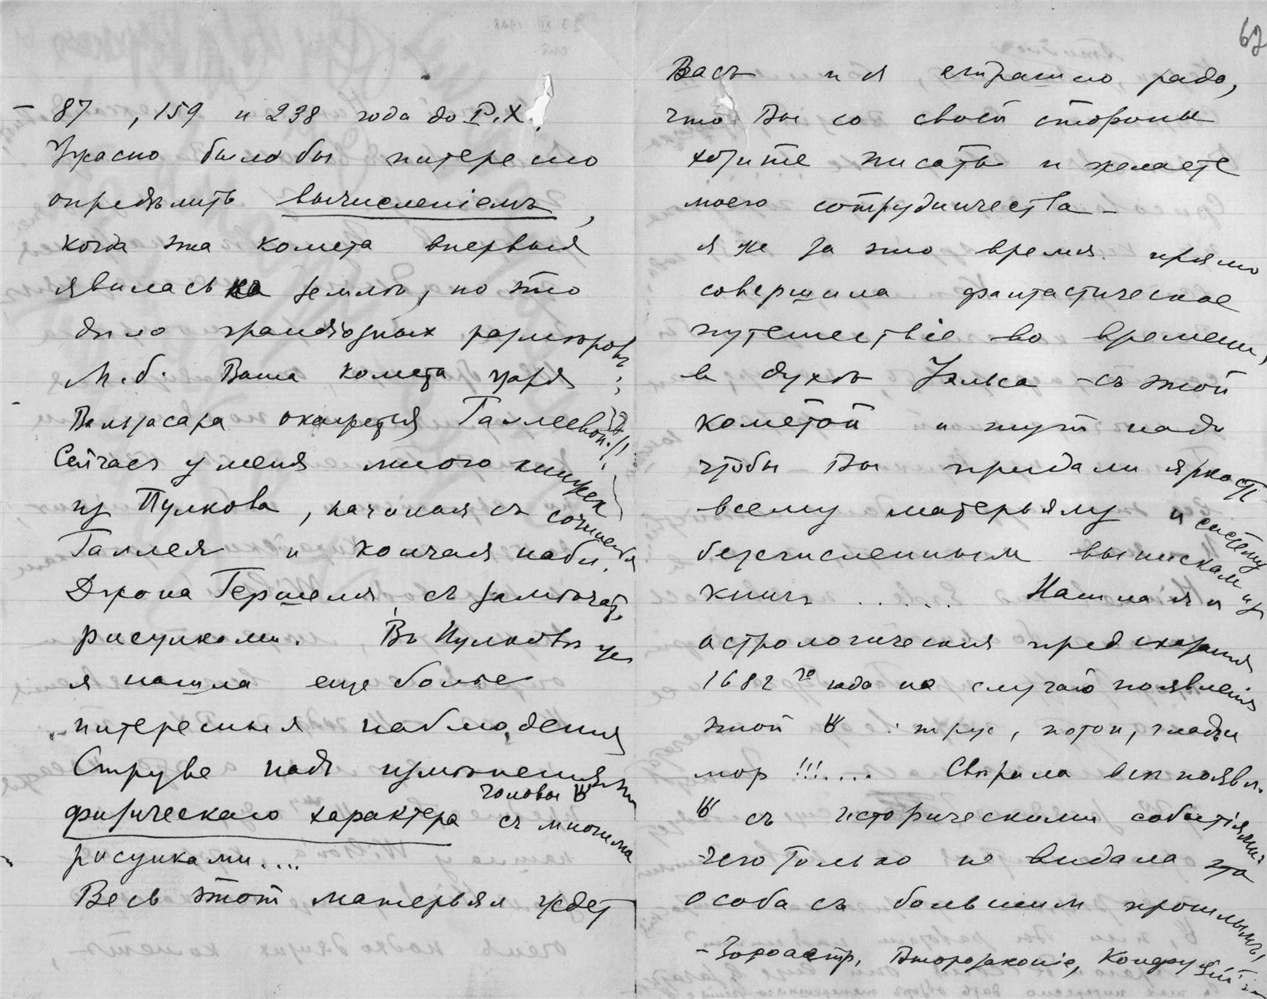 87, 159 и 238 года до Р.Х.
Ужасно было бы интересно
опредѣлить вычисленіемъ,
когда эта комета впервыя
явилась на землѣ, но это
было грандіозных размѣровъ
М.б. Ваша комета царя
окажется Галлеевой!!
Сейчасъ у меня много книжек
из Пулкова, начиная съ сочиненія
Галлея и кончая набл.
Джона Гершеля, съ замѣчат.
рисунками. Въ Пулковѣ же
я нашла еще болѣе
интересныя наблюденія
Струве надъ измѣненіями
физическаго характера головы ☄ съ многими
рисунками....
Весь этот матерьял ждет
62
Васъ и я страшно рада,
что Вы со своей стороны
хотите писать и желаете
моего сотрудничества –
я же за это время прямо
совершила фантастическое
путешествіе во времени,
в духѣ Уэльса – съ этой
кометой и тут надо
чтобы Вы придали яркость
всему матерьялу и систему
безчисленным выпискам из
книгъ ...... Нашла я и
астрологическія предсказанія
1682 го года на случай появленія
этой ☄: трус, потоп, глады
мор!!!.... Свѣрила всѣ появл.
☄ съ историческими событіями:
чего только не видала эта
особа съ большим прошлымъ,
– Зороастр, Второзаконіе, Конфуцій